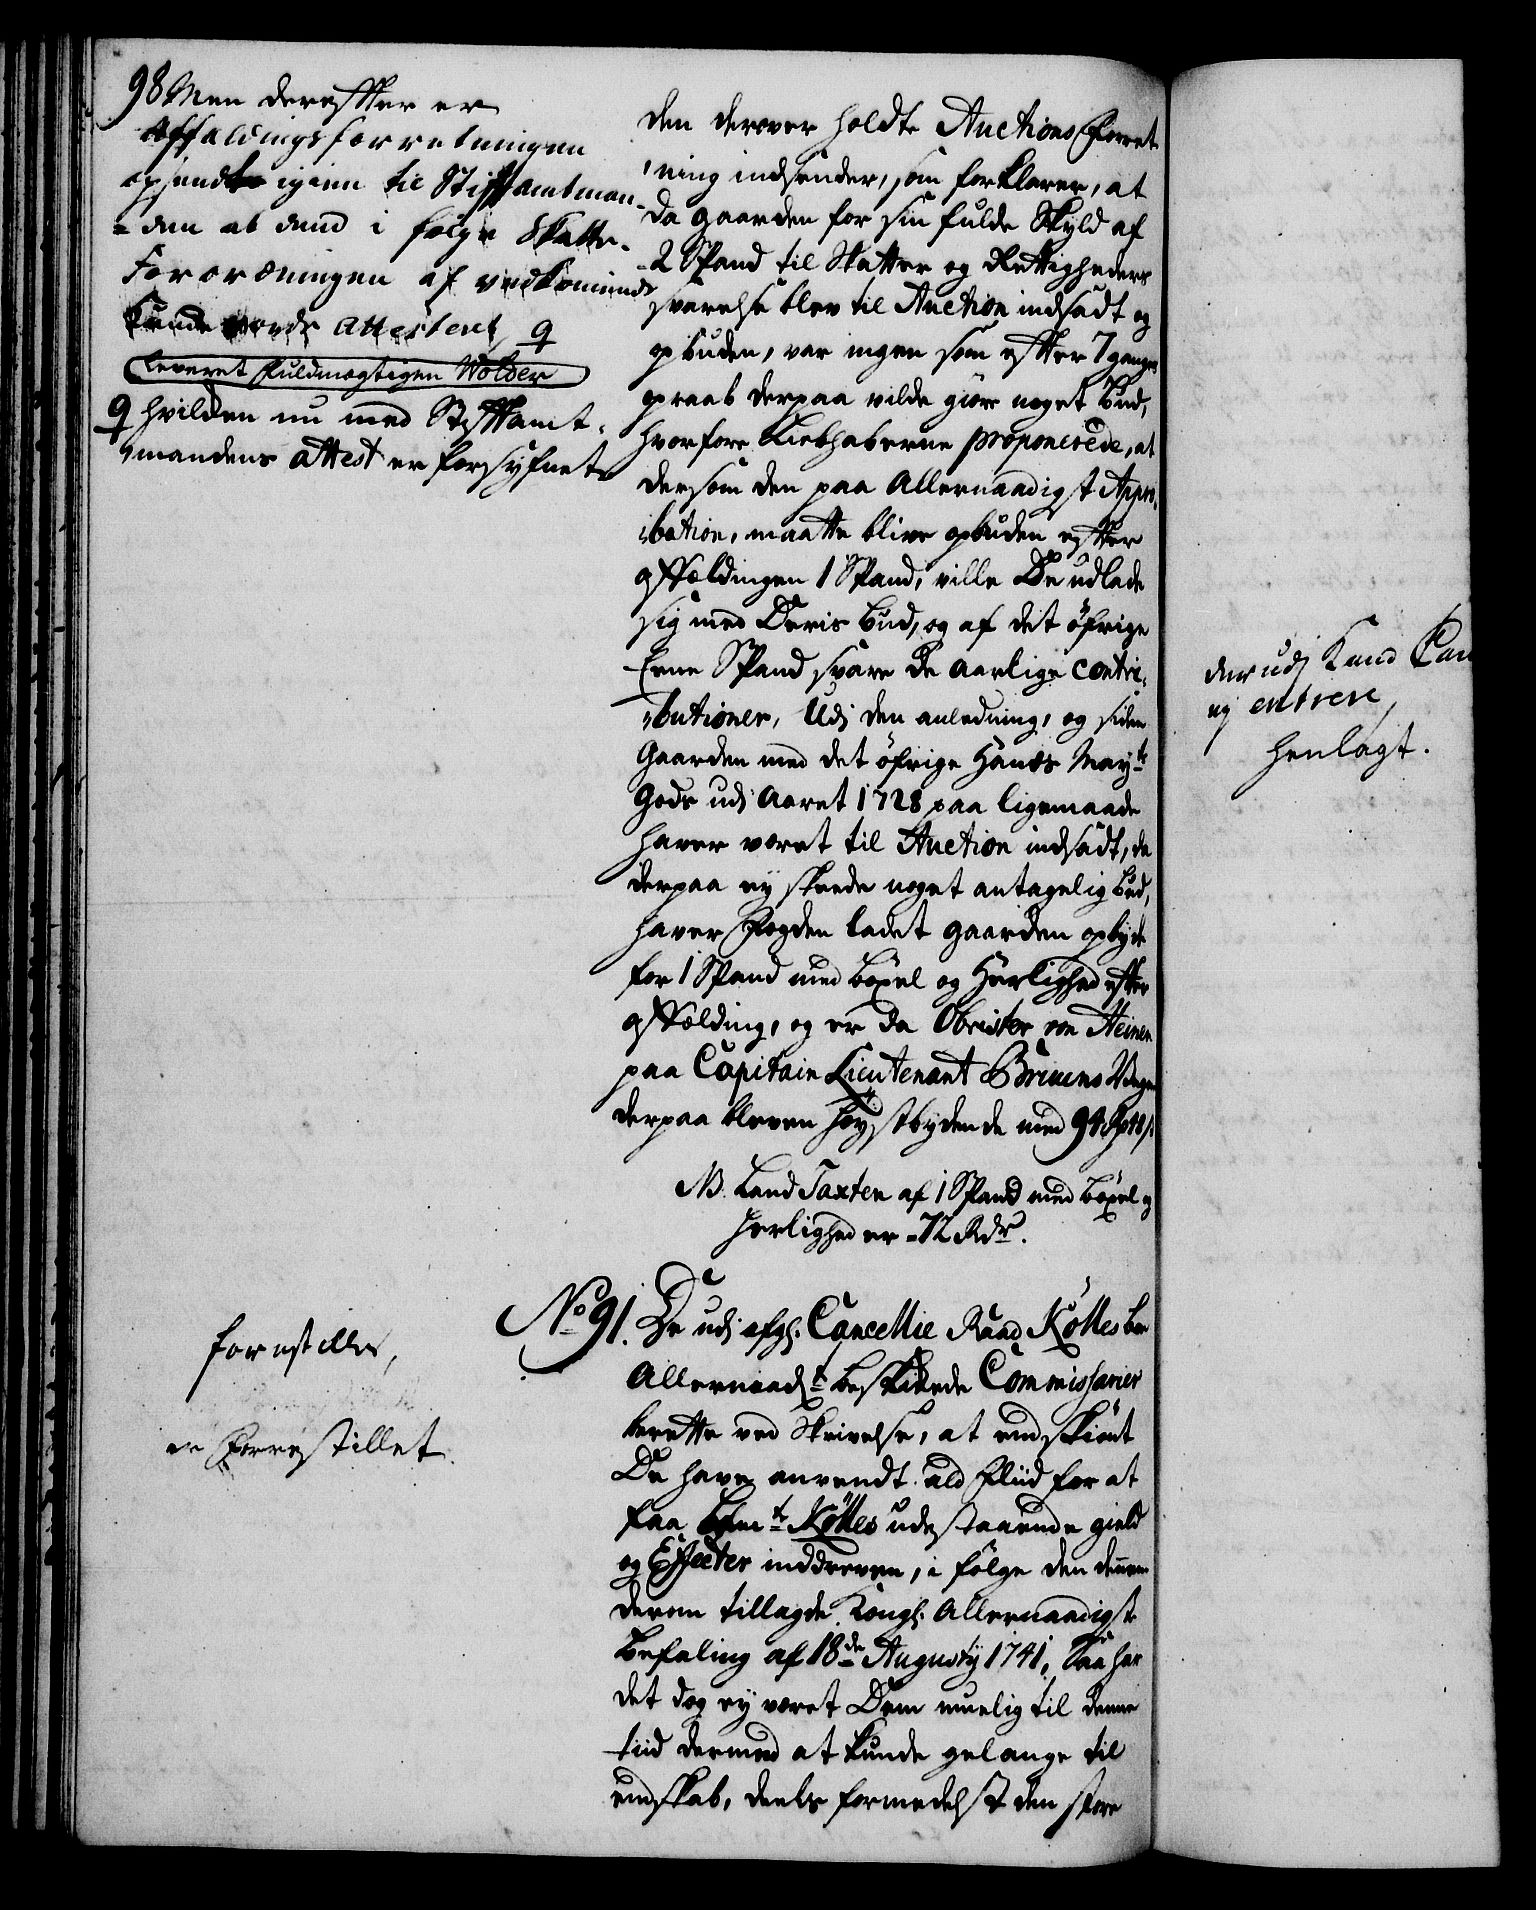 98 Men derefter er
Affældingsforretningen
opsendt igien til Stiftamtman-
den at dend i følge Skatte-
Forordningen af vedkommende
Kunde vorde Attesteret, ♀
Leveret Fuldmægtigen Wolder
♀ hvilcken nu med Stiftamt-
mandens Attest er forsyfnet
den derover holdte Auctions Forret-
ning indsender, som forklarer, at
da gaarden for sin fulde Skyld af
2 Spand til Skatter og Rettigheders
svarelse blev til Auction indsadt og
opbuden, var ingen som efter 7 ganges
opraab derpaa vilde giøre noget Bud,
hvorfore Liebhaberne proponerede, at
dersom den paa Allernaadigst Appro-
bation, maatte blive opbuden efter
affældingen 1 Spand, ville De udlade
sig med Deris bud, og af det öfrige
Eene Spand svare de aarlige contri-
butioner, Udi den anledning, og siden
Gaarden med det öfrige Hands Mayts
Gods udi Aaret 1728 paa ligemaade
haver været til Auction indsadt, da
derpaa ey skeede noget antagelig bud,
haver Fogden ladet gaarden opbyde
for 1 Spand med böxel og Herlighed efter
affælding, og er da Obrister von Heinen
paa Capitain Lieutenant Bruuns Vegne
derpaa bleven høystbydende med 94
NB. Land Taxten af 1 Spand med böxel og
herlighed er - 72 Rdr.
No 91. De udi afgl. Cancellie Raad Köttes boe
Allernaadt beskikede Commissarier
berette ved Skrivelse, at endskiönt
De have anvendt ald Fliid for at
faa Köttes udestaaende gield
og Effecter inddreven, i følge den dennem
derom tillagde Kongl. Allernaadigste
Befaling af 18de Augusty 1741, Saa har
det dog ey været Dem muelig til denne
tiid dermed at kunde gelange til
endskab, deels formedelst den store
forestilles,
er Forrestillet
der udj Kand
ey entrere,
henlagt.